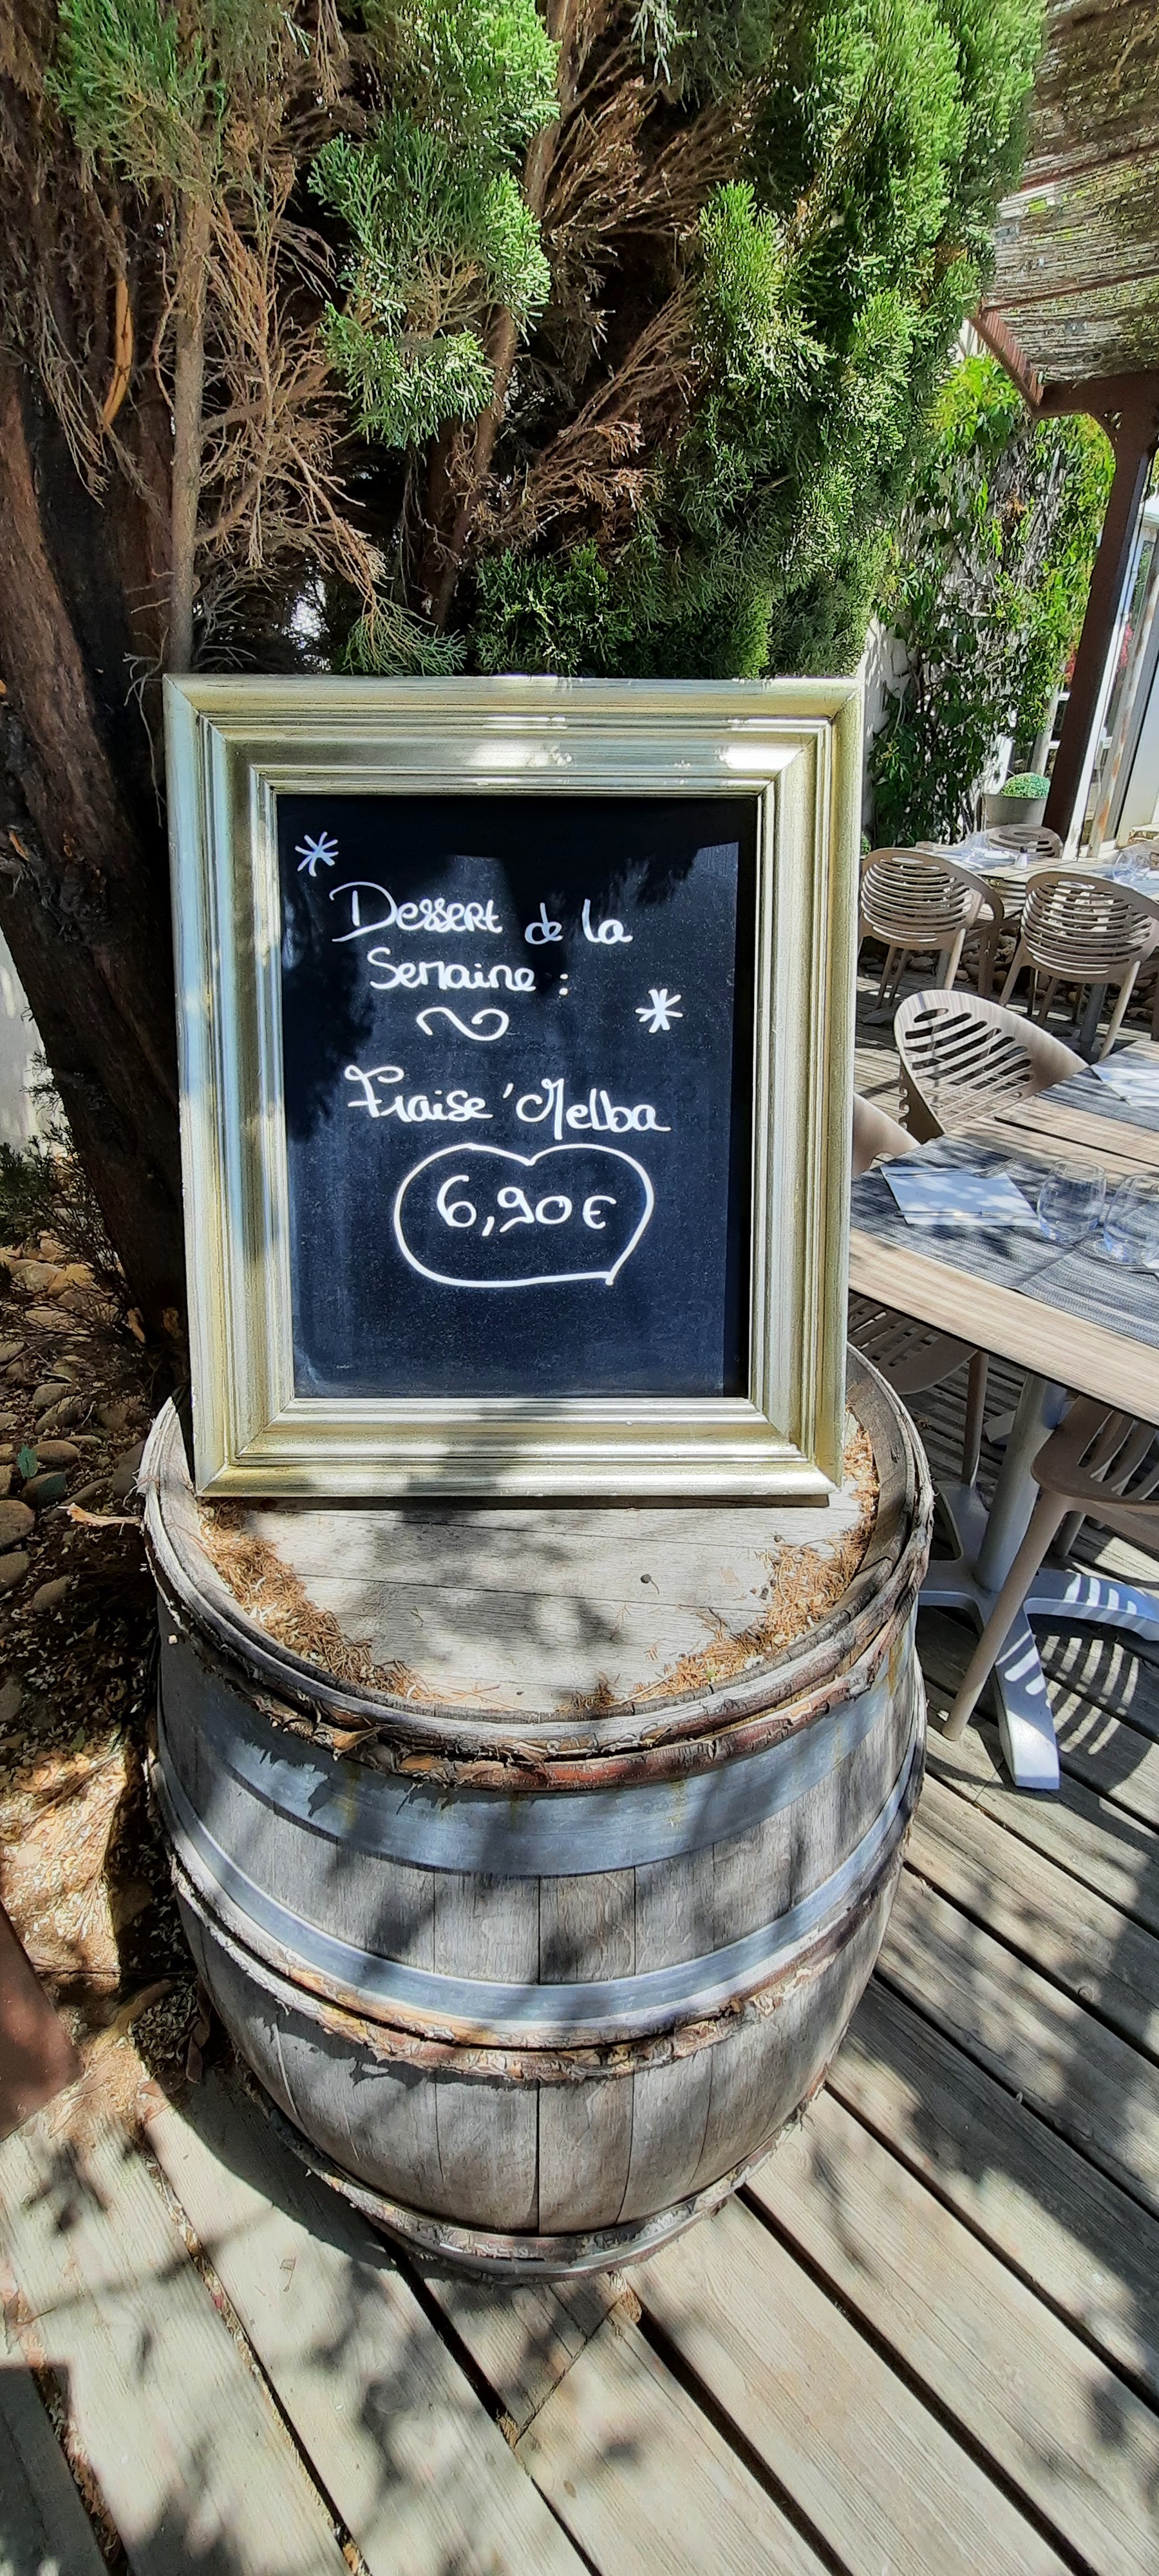 Dessert de la
Semaine :
Fraise 'Melba
6,90€